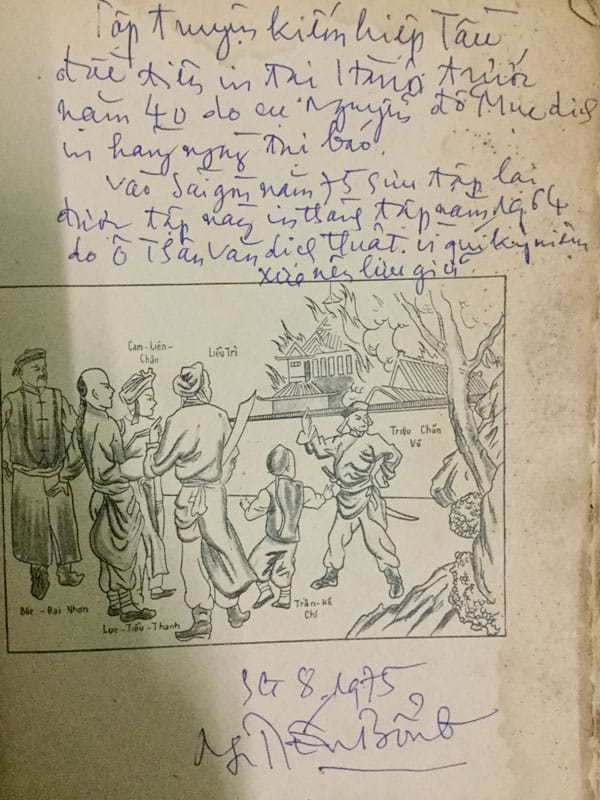 Tập truyện kiếm hiệp Tàu
đầu tiên in tại Hà Nội trước
năm 40 do cụ Nguyễn đỗ Mục dịch
in hàng ngày tại báo.
Vào Sài gòn năm 75 sưu tập lại
được tập này in tháng tập năm 1964
do Ô Trần Văn dịch thuật. vì quí kỷ niệm
xưa nên lưu giữ
Cam-Liên-
Châu
Liễu Trì
Triệu Chấn
Võ
Bắc-Đại Nhơn
Lục-Tiểu-Thanh
Trần-Kế
Chí
SG 8.1975